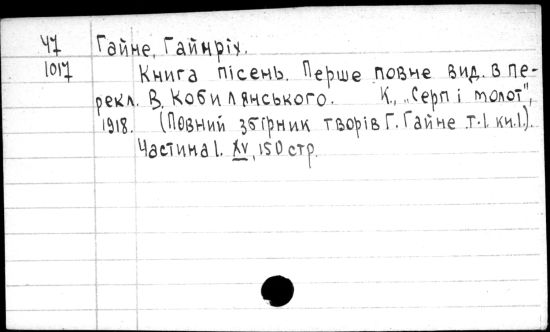 Ч7 Гайне, Гайнріх.
1017 Книга пісень. Перше повне вид. в пе-
рекл. В. Кобилянського. К., „Серп і молот",
1918. (Повний збірник творів Г. Гайне т.1. кн.1.).
Частина 1. XV, 150 стр.